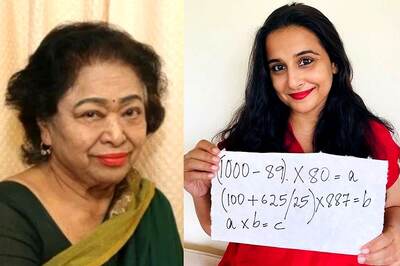 (1000 – 89) X 80 = a
(100 + 625/25) X 887 = b
a x b = c